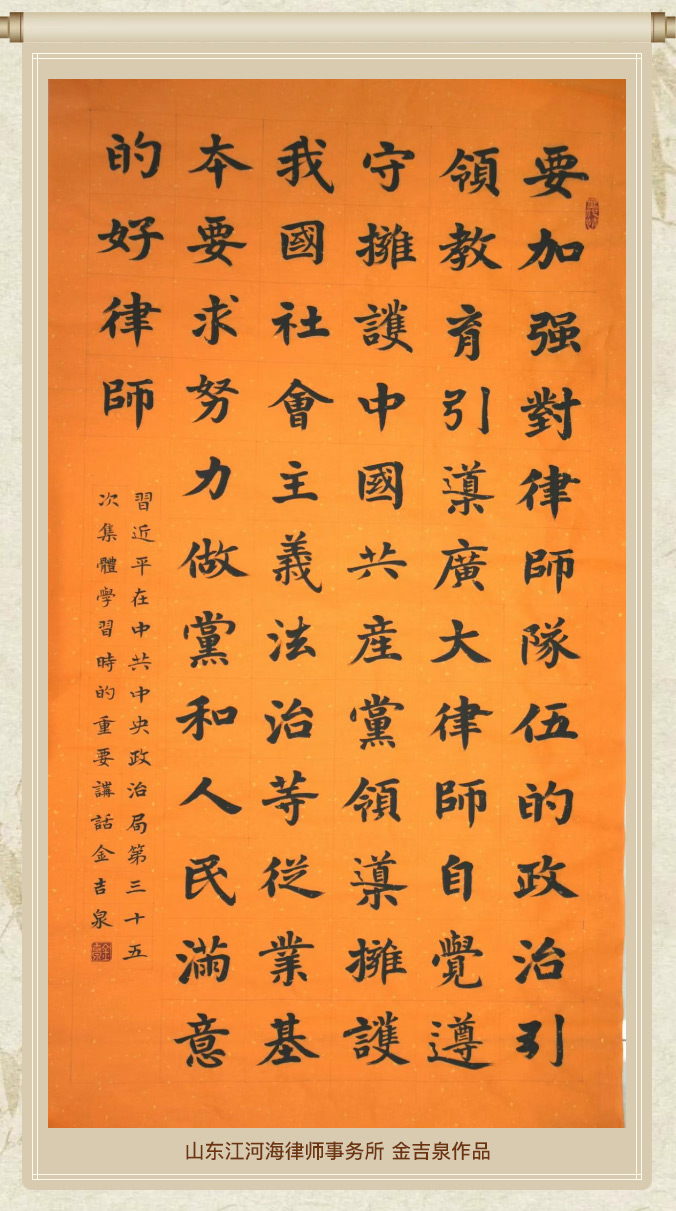 要加强對律師隊伍的政治引
領教育引導廣大律師自覺遵
守擁護中國共産黨領導擁護
我國社會主義法治等從業基
本要求努力做黨和人民滿意
的好律師
習近平在中共中央政治局第三十五
次集體學習時的重要講話金吉泉
山东江河海律师事务所 金吉泉作品